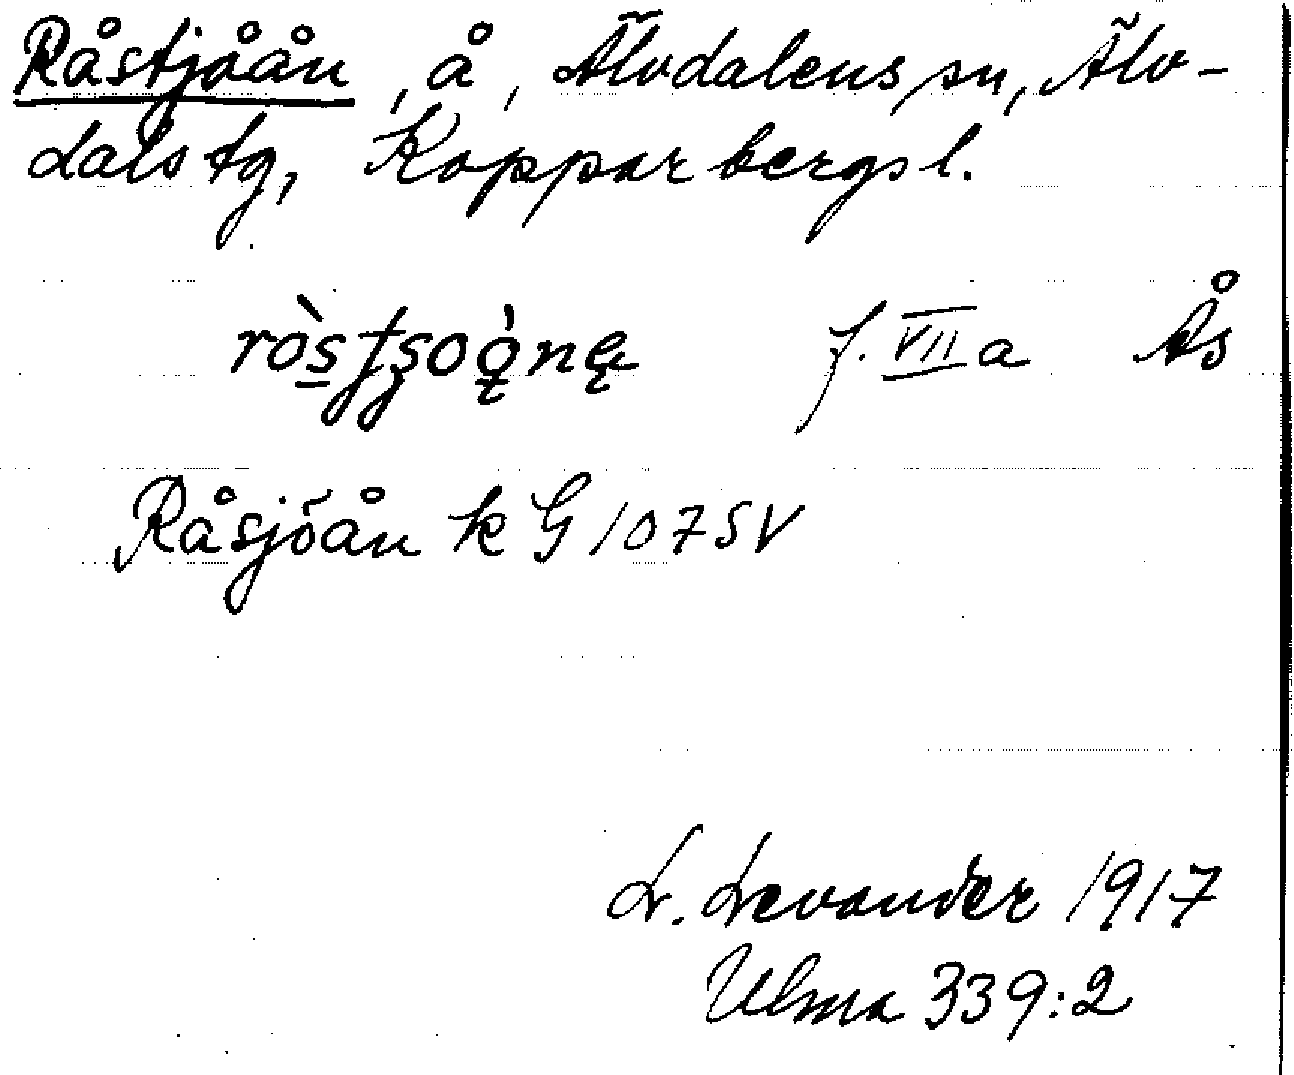 Råstjåån, å, Älvdalens sn, Älv-
dals tg, Kopparbergs l.
f. VII a Ås
Råsjöån k G 107 SV
L. Levander 1917
Ulma 339:2